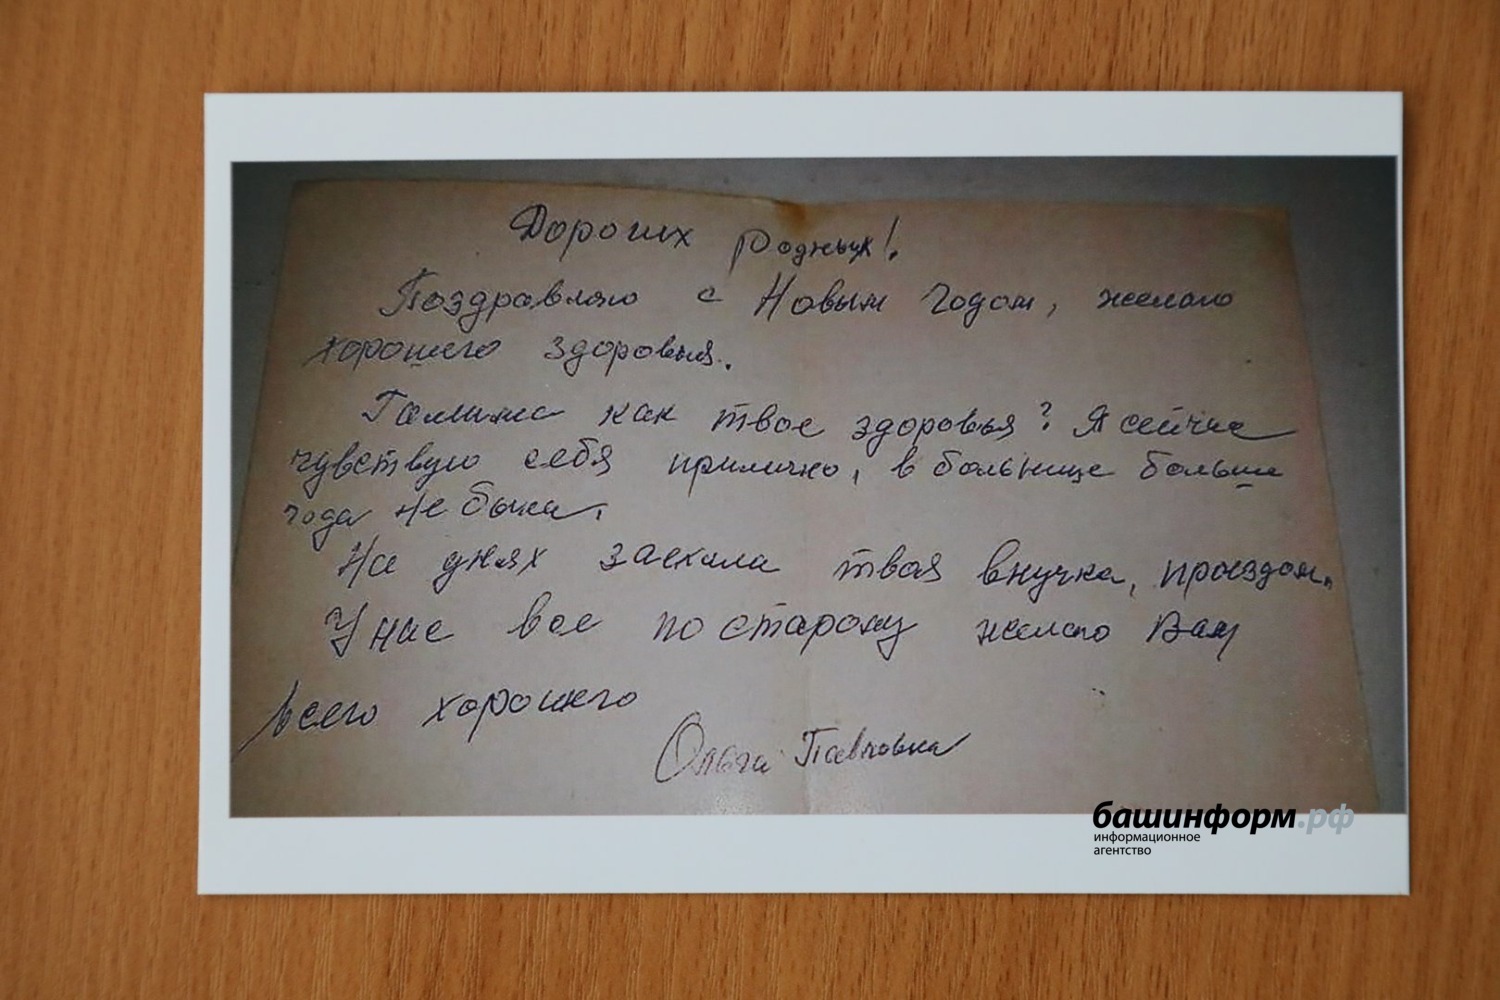 Дорогих родных!
Поздравляю с Новым годом, желаю
хорошего здоровья.
Галина как твое здоровья? Я сейчас
чувствую себя прилично, в больнице больше
года не была.
На днях заехала твоя внучка, проездом.
У нас все по старому желаю Вам
всего хорошего
Ольга Павловна
башинформ.рф
информационное
агентство